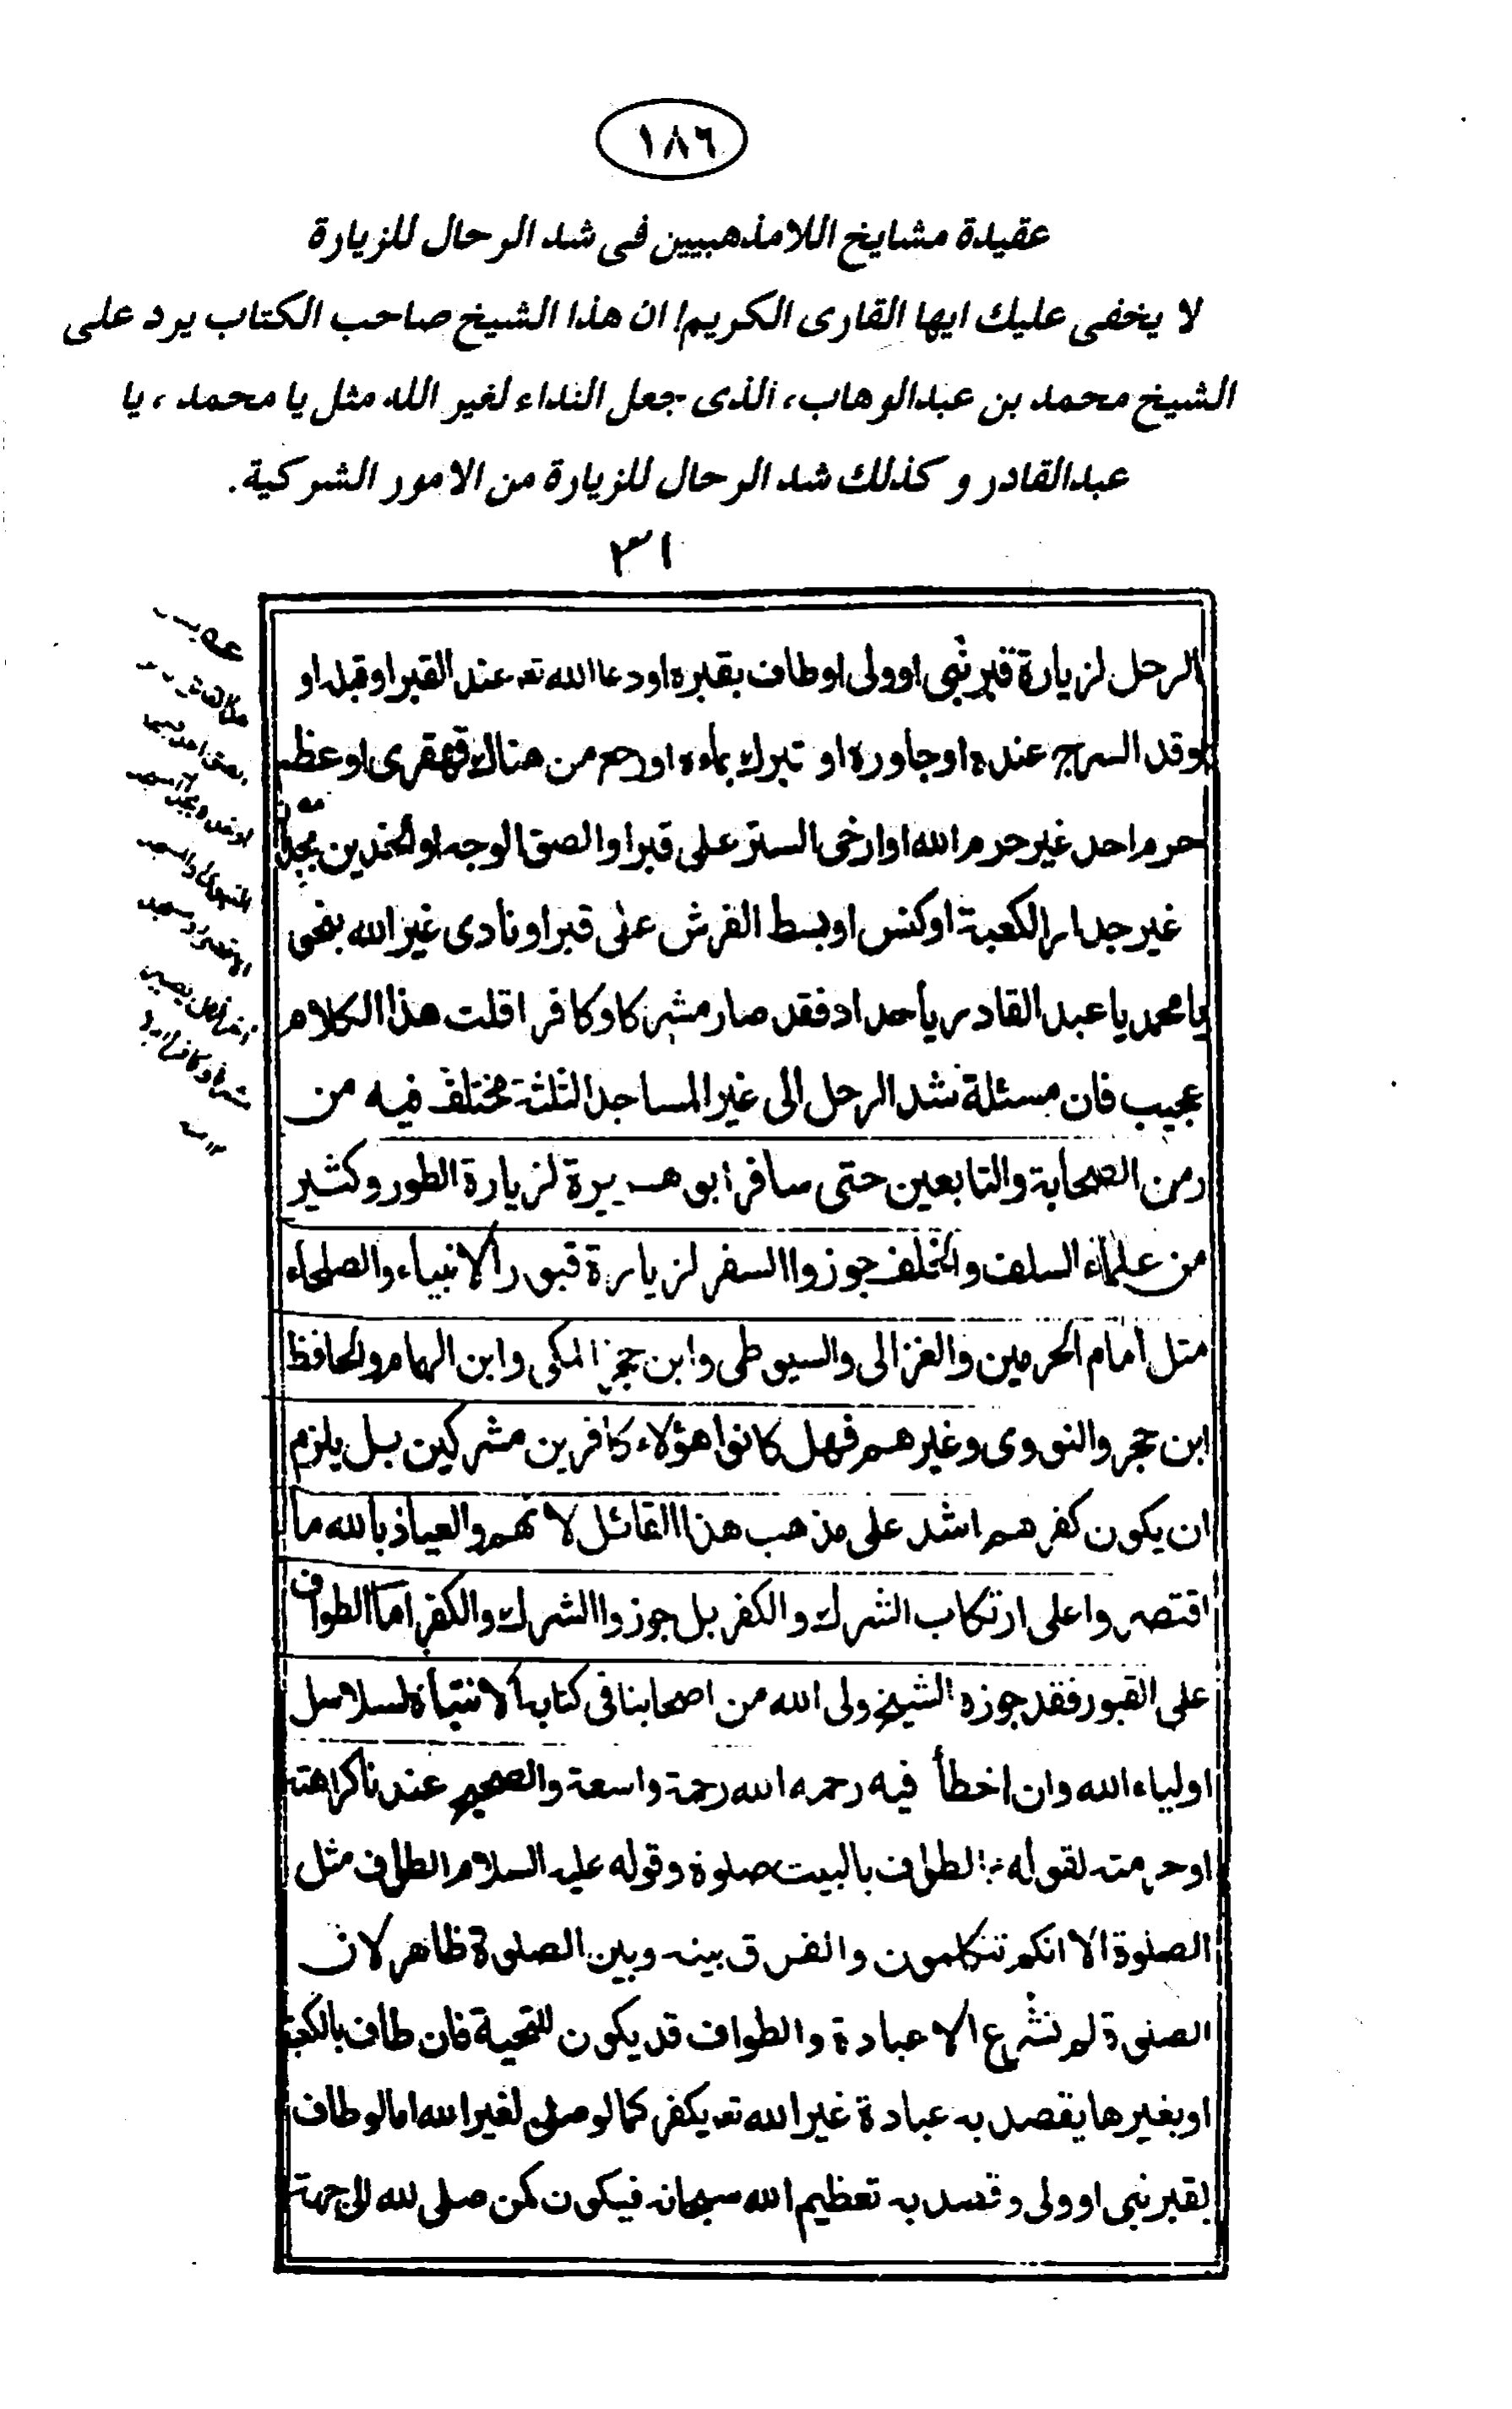 ١٨٦
عقيدة مشايخ اللامذهبيين فى شد الرحال للزيارة
لا يخفى عليك ايها القارى الكريم! ان هذا الشيخ صاحب الكتاب يرد على
الشيخ محمد بن عبدالوهاب، الذى جعل النداء لغير الله مثل يا محمد، يا
عبدالقادر و كذلك شد الرحال للزيارة من الامور الشركية.
٣١
الرحل لزيارة قبر نبى او ولى او طاف بقبره او دعا الله تعه عند القبر او قبله او
اوقد السرج عنده او جاوره او تبرك بماءه او رجع من هناك قهقرى او عظم
حرم احد غير حرم الله او ارخى الستر على قبر او الصق الوجه او الخدين
غير جدار الكعبة او كنس او بسط الفرش على قبر او نادى غير الله بنحو
يا محمد يا عبد القادر يا حداد فقد صار مشركا وكافرا قلت هذا الكلام
عجيب فان مسئلة شد الرحل الى غير المساجد الثلثة مختلف فيه من
زمن الصحابة والتابعين حتى سافر ابو هريرة لزيارة الطور وكثير
من علماء السلف والخلف جوزوا السفر لزيارة قبور الانبياء والصلحاء
مثل امام الحرمين والغزالى والسيوطى وابن حجر المكى وابن الهمام والحافظ
ابن حجر والنووى وغيرهم فهل كانوا هؤلاء كافرين مشركين بل يلزم
ان يكون كفرهم اشد على مذهب هذا القائل لانهم والعياذ بالله ما
اقتصروا على ارتكاب الشرك والكفر بل جوزوا الشرك والكفر اما الطواف
على القبور فقد جوزه الشيخ ولى الله من اصحابنا فى كتابه الانتباه لسلاسل
اولياء الله وان اخطأ فيه رحمه الله رحمة واسعة والصحيح عندنا كراهته
او حرمته لقوله الطواف بالبيت صلوة وقوله عليه السلام الطواف مثل
الصلوة الا انكم تتكلمون والفرق بينه وبين الصلوة ظاهر لان
الصلوة لم تشرع الا عبادة والطواف قد يكون للتحية فان طاف بالكعبة
او بغيرها يقصد به عبادة غير الله تعه يكفر كما لو صلى لغير الله اما لو طاف
بقبر نبى او ولى وقصد به تعظيم الله سبحانه فيكون كمن صلى لله الى جهة